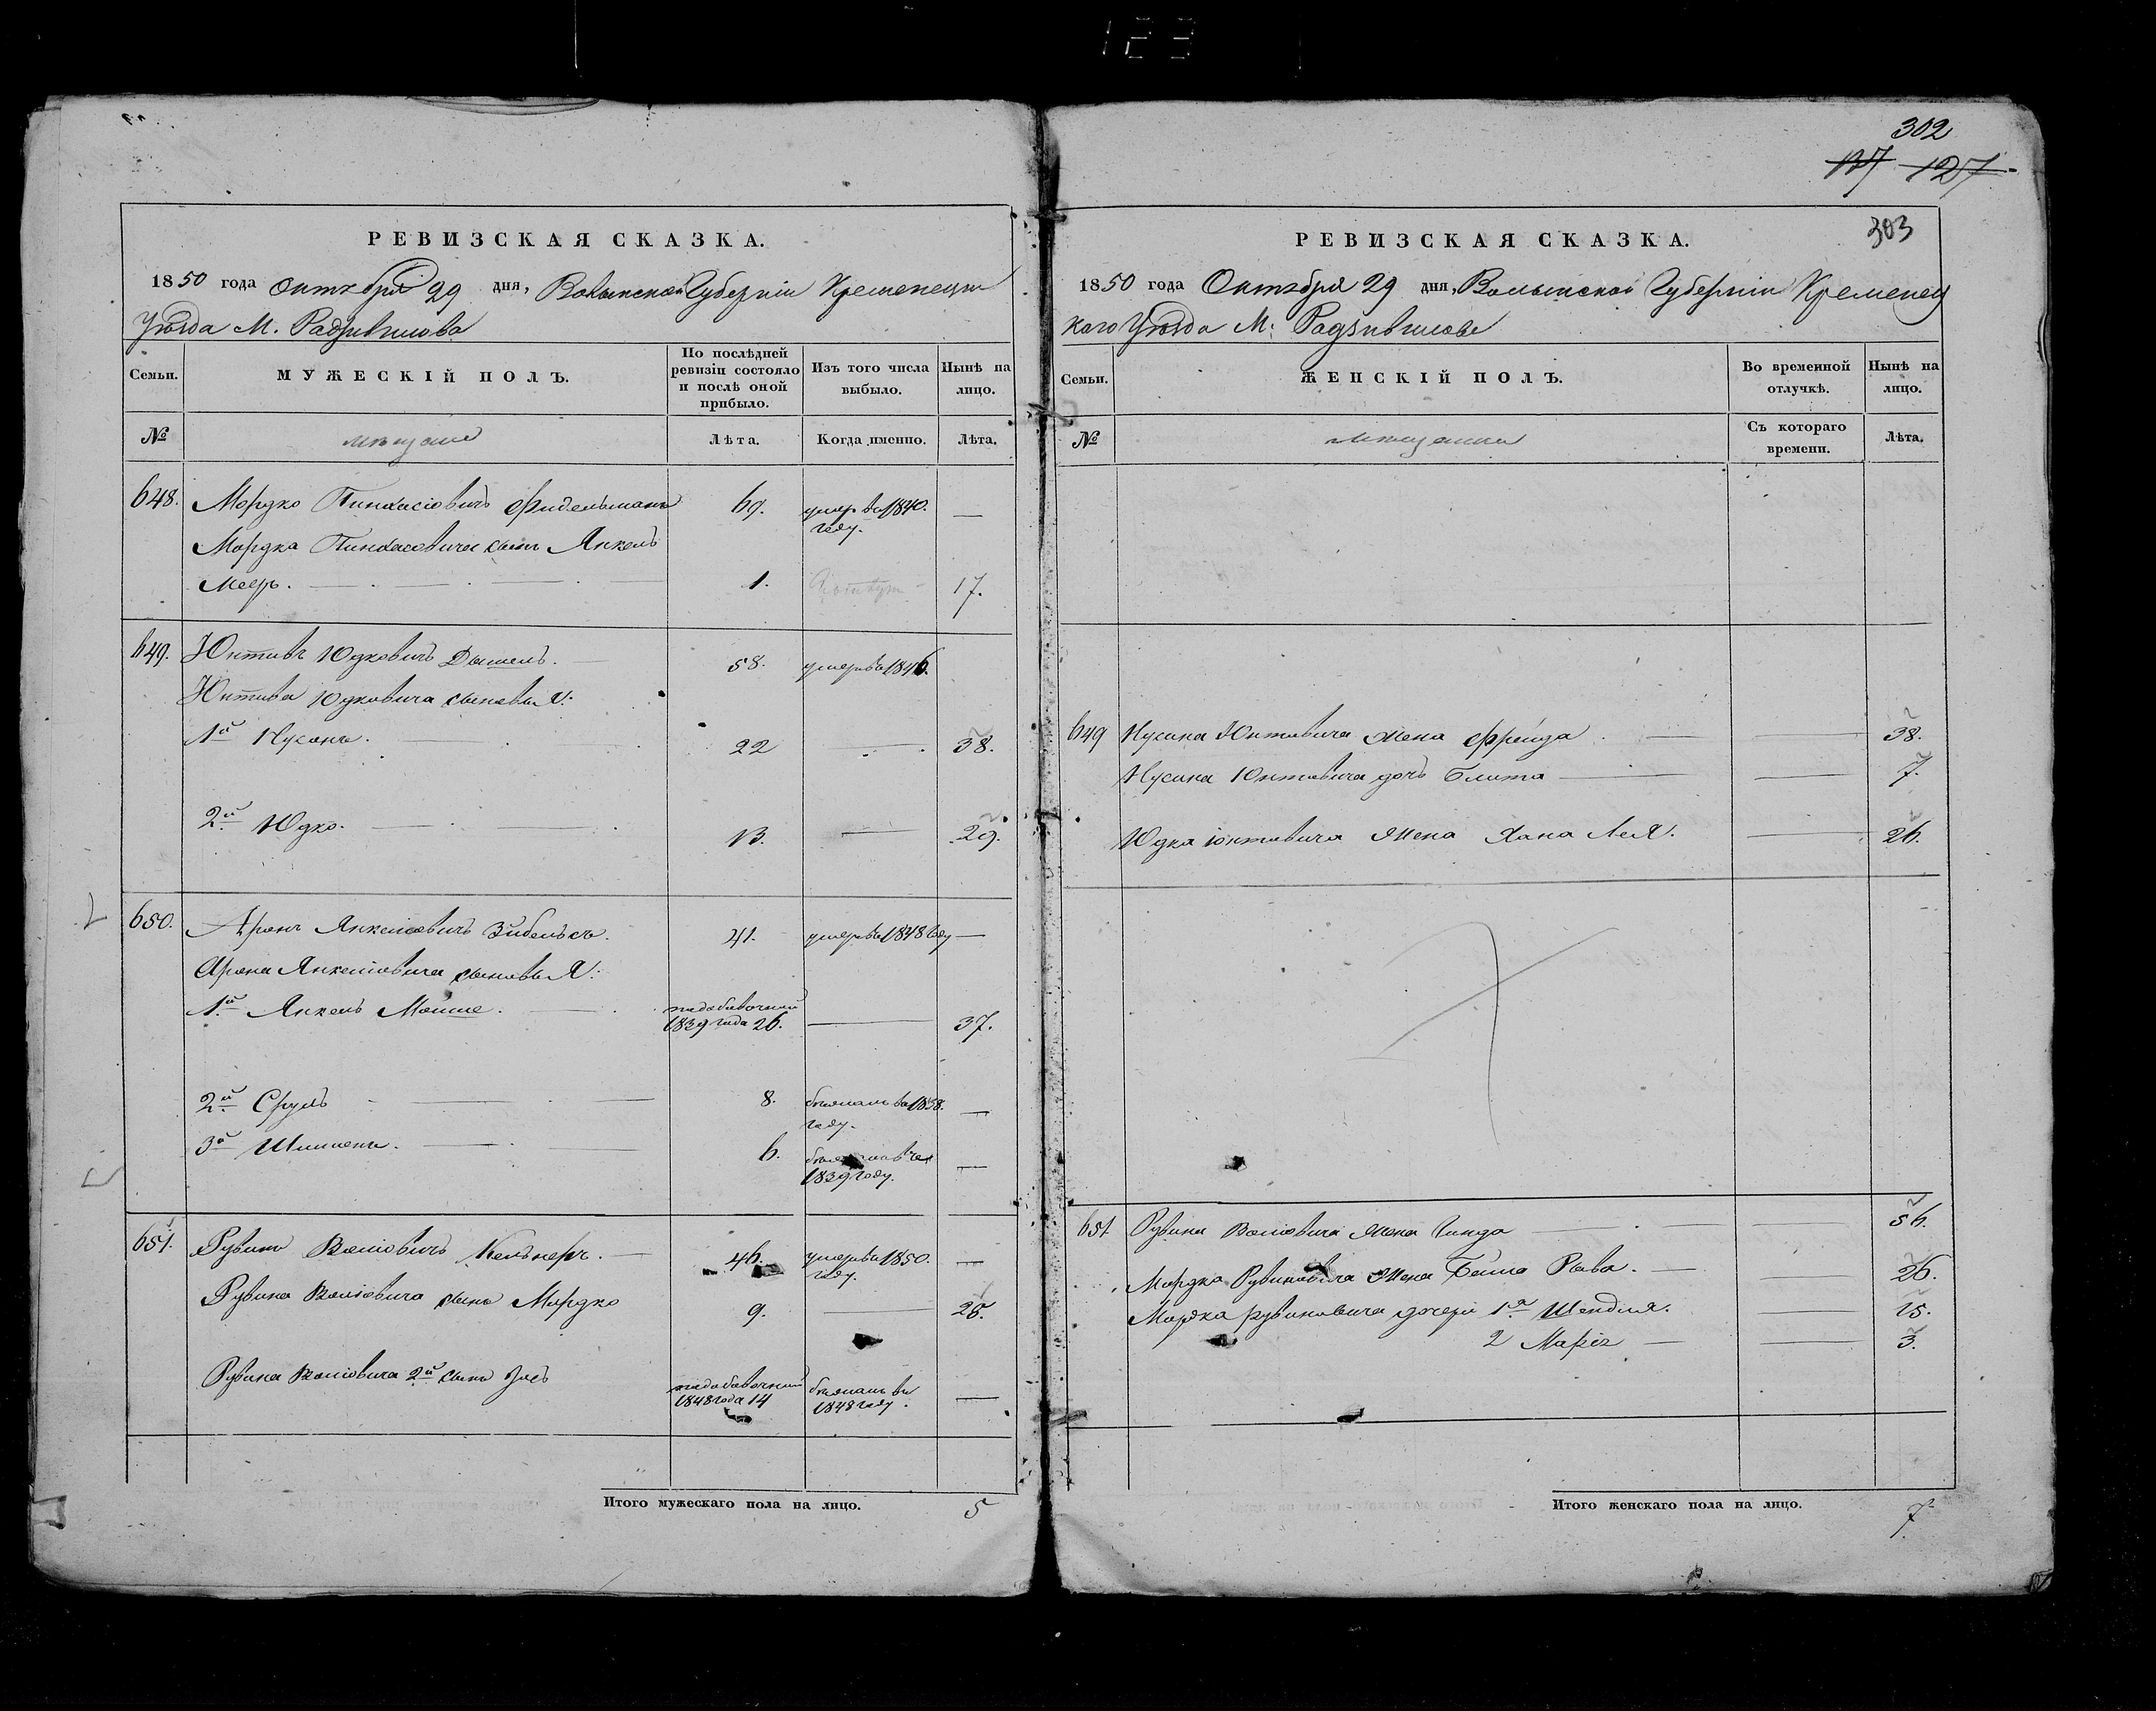 123
302
117 127
РЕВИЗСКАЯ СКАЗКА.
1850 года Октября 29 дня, Волынской Губерніи Кременецкаго
Уѣзда М. Радзивилова
Семьи.
МУЖЕСКІЙ ПОЛЪ.
По послѣдней ревизіи состояло и послѣ оной прибыло.
Изъ того числа выбыло.
Нынѣ на лицо.
№
мѣщане
Лѣта.
Когда именно.
Лѣта.
648. Мордко Пинхасіовичъ Фидельманъ 69. умеръ въ 1840. году. —
Мордка Пинхасовича сынъ Янкель
Меер. 1. 17.
649. Юнтивъ Юдковичъ Дышель. 58. умеръ въ 1846.
Юнтива Юдковича сыновья:
1й Нусонъ. 22 — 38.
2й Юдко. 13. — 29.
650. Аронъ Янкеліовичъ Зибельсъ. 41. умеръ въ 1848 году —
Арона Янкеліовича сыновья:
1й Янкель Мошие. 1839 года 26. — 37.
2й Сруль 8. въ 1838. году. —
3й Шимшенъ. 6. 1839 году. —
651. Рувинъ Воліовичъ Кельнеръ. 46. умеръ въ 1850. году. —
Рувина Воліовича сынъ Мордко 9. — 26.
Рувина Воліовича 2й сынъ Зось 1848 года 14 въ 1848 году. —
Итого мужескаго пола на лицо. 5
РЕВИЗСКАЯ СКАЗКА.
303
1850 года Октября 29 дня, Волынской Губерніи Кременец
каго Уѣзда М. Радзивилове
Семьи.
ЖЕНСКІЙ ПОЛЪ.
Во временной отлучкѣ.
Нынѣ на лицо.
№
мѣщанки
Съ котораго времени.
Лѣта.
649 Нусина Юнтовича жена Фрейда — 38.
Нусина Юнтовича дочь Блита — 7.
Юдка Юнтовича жена Хана Лея. — 26.
651. Рувина Воліовича жена Гинда — 56.
Мордка Рувиновича жена Бейла Рава. — 26.
Мордка Рувиновича дочери 1я Шендля. — 15.
2 Маріе — 3.
Итого женскаго пола на лицо. 7